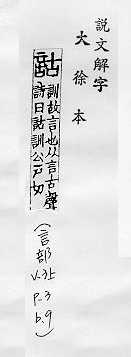 説文解字
大徐本
詁
訓故言也从言古聲
詩曰詁訓公戶切
(言部
v.3上
p.3
b.9)